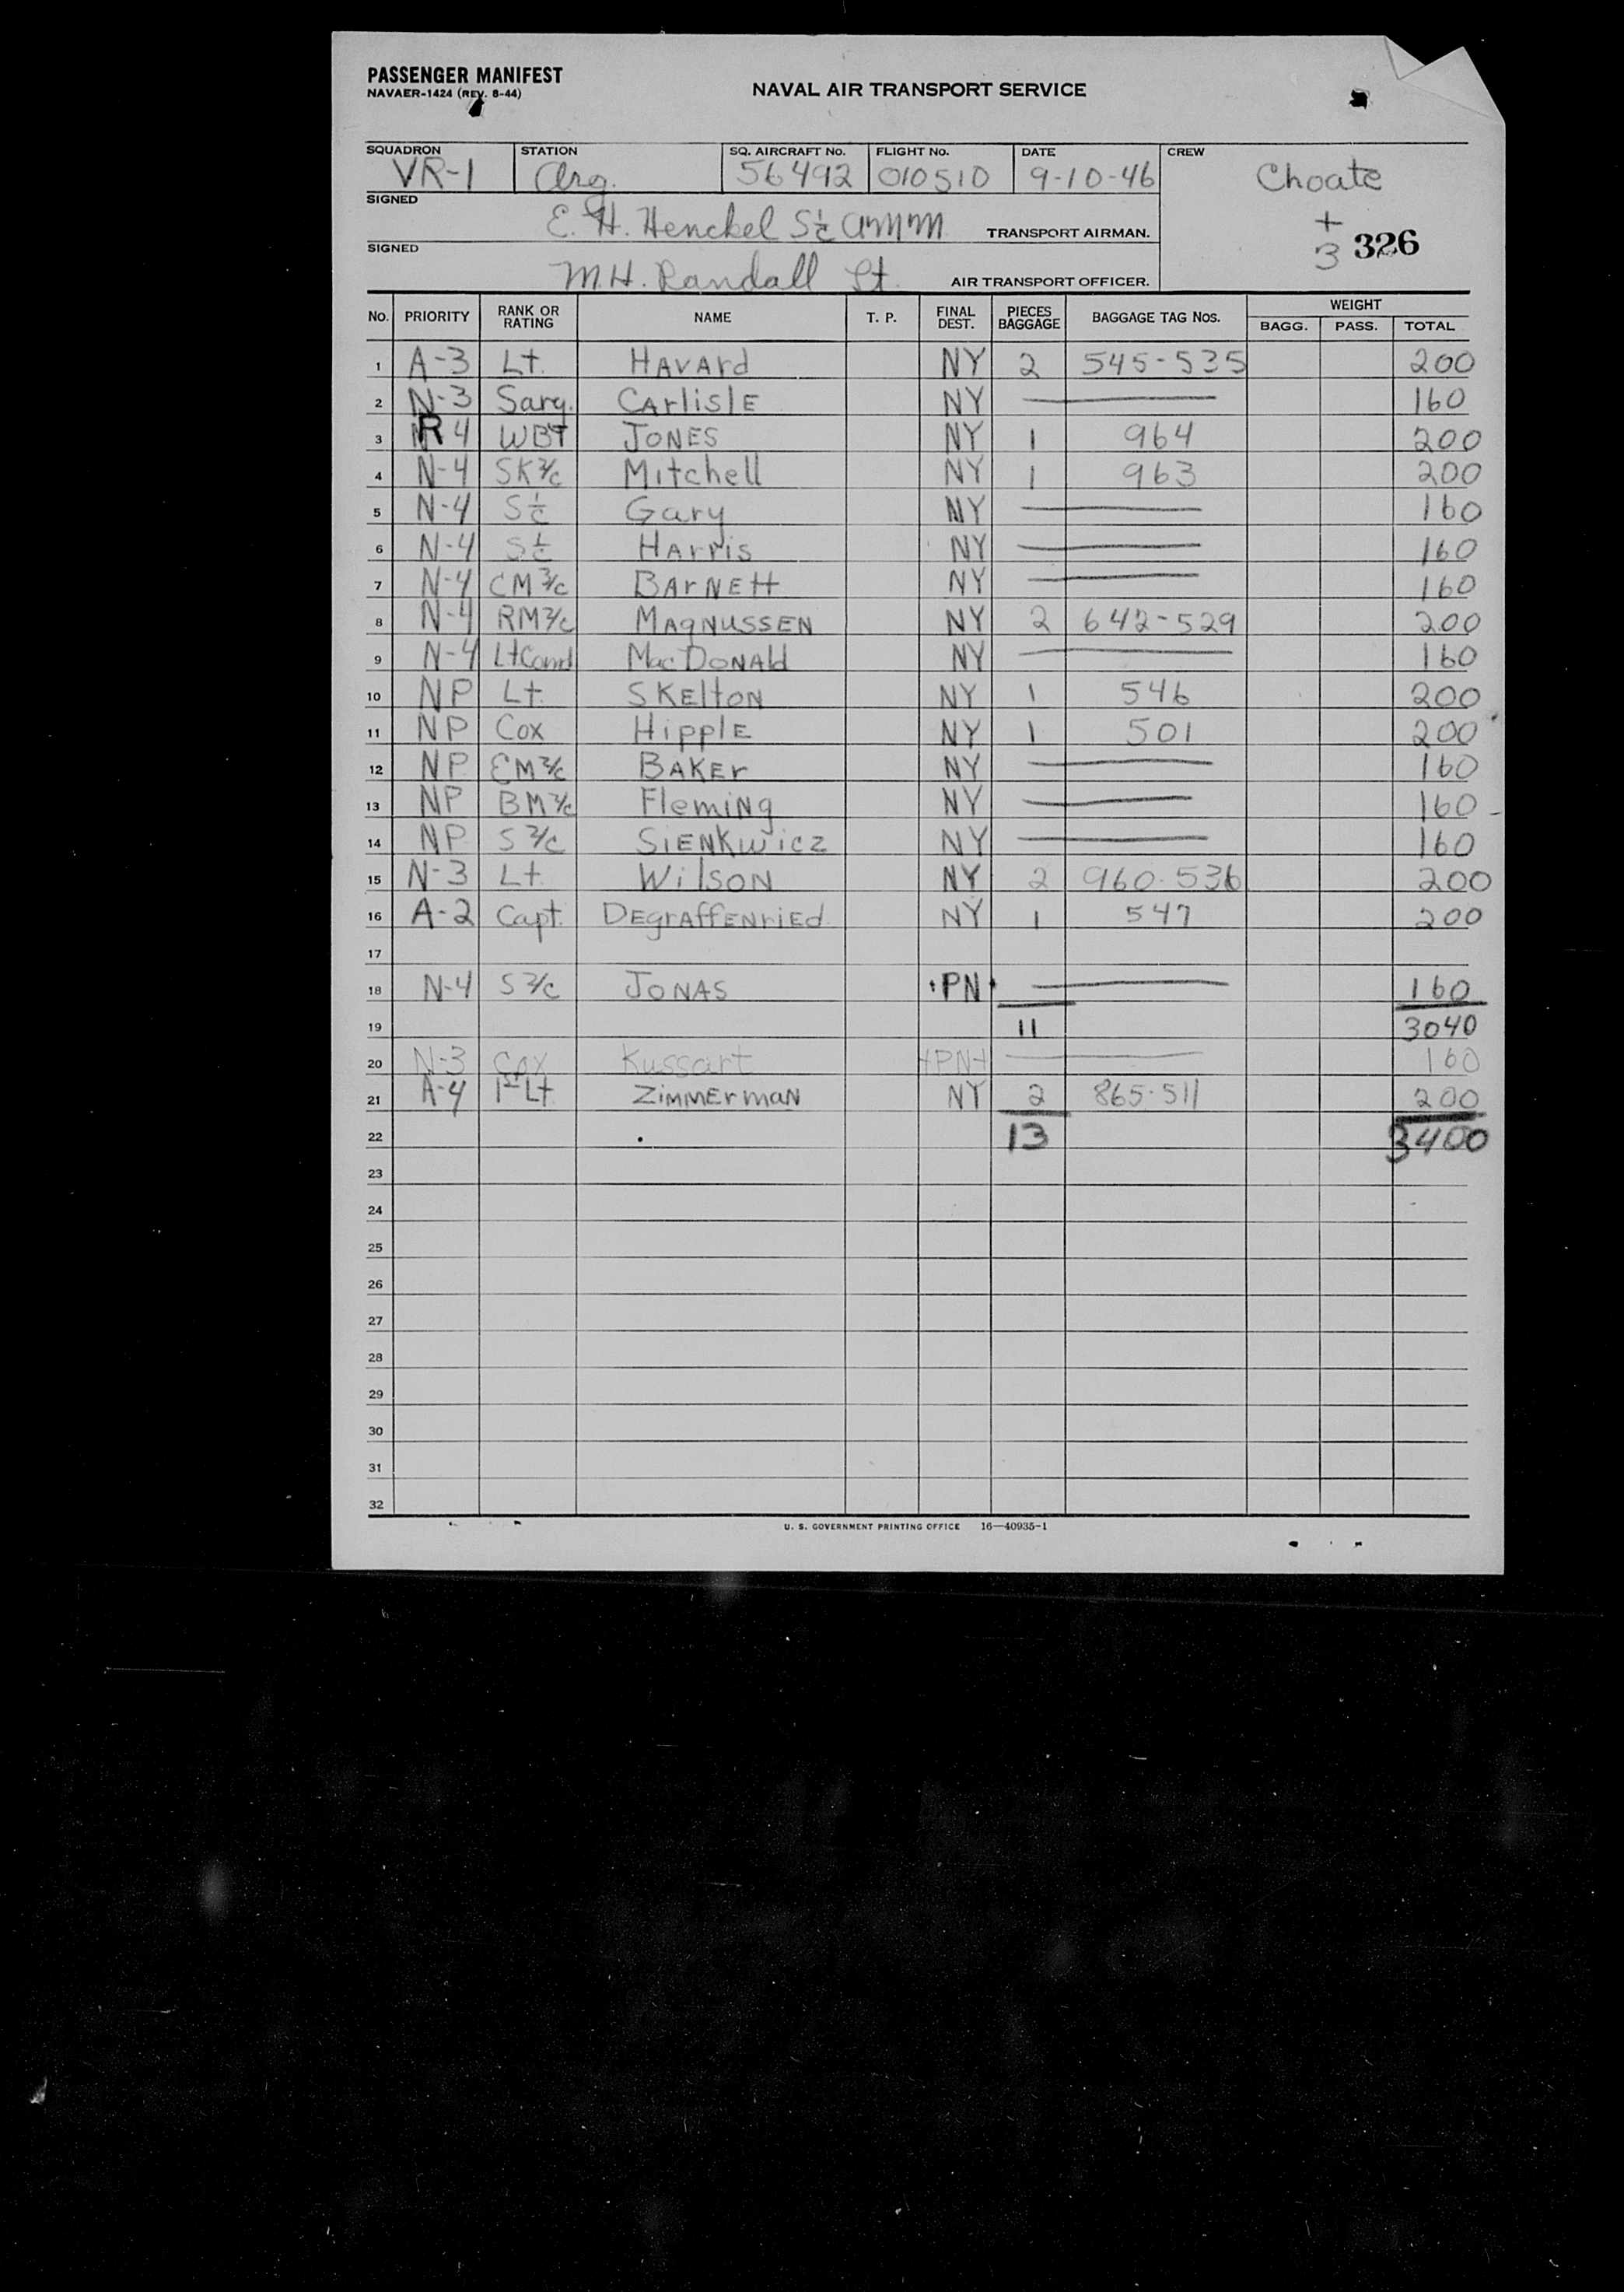 PASSENGER MANIFEST
NAVAER-1424 (REV. 8-44)
NAVAL AIR TRANSPORT SERVICE
SQUADRON STATION SQ. AIRCRAFT No. FLIGHT No. DATE CREW
VR-1 Arg. 56492 010510 9-10-46 Choate
SIGNED
E. H. Henckel S1/c AMM TRANSPORT AIRMAN. + 3 326
SIGNED
M.H. Randall Lt. AIR TRANSPORT OFFICER.
No. PRIORITY RANK OR RATING NAME T. P. FINAL DEST. PIECES BAGGAGE BAGGAGE TAG Nos. WEIGHT
BAGG. PASS. TOTAL
1 A-3 Lt. HAVArd NY 2 545-535 200
2 N-3 Sarg. CArlislE NY — 160
3 R 4 WBT JONES NY 1 964 200
4 N-4 SK 3/c Mitchell NY 1 963 200
5 N-4 S1/c Gary NY — 160
6 N-4 S1/c HArris NY — 160
7 N-4 CM 3/c BArNEtt NY — 160
8 N-4 RM 3/c MAgNUSSEN NY 2 642-529 200
9 N-4 Lt Comd MacDONAld NY — 160
10 NP Lt. SKEltON NY 1 546 200
11 NP Cox HipplE NY 1 501 200
12 NP EM 2/c BAKEr NY — 160
13 NP BM 2/c FlemiNg NY — 160
14 NP S 2/c SiENKwicz NY — 160
15 N-3 Lt. WilSON NY 2 960-536 200
16 A-2 Capt. DEgrAffENriEd NY 1 547 200
17
18 N-4 S 2/c JONAS PN — 160
19 11 3040
20 N-3 Cox Kussart PN — 160
21 A-4 1st Lt ZimmErmaN NY 2 865-511 200
22 13 3400
23
24
25
26
27
28
29
30
31
32
U. S. GOVERNMENT PRINTING OFFICE 16—40935-1